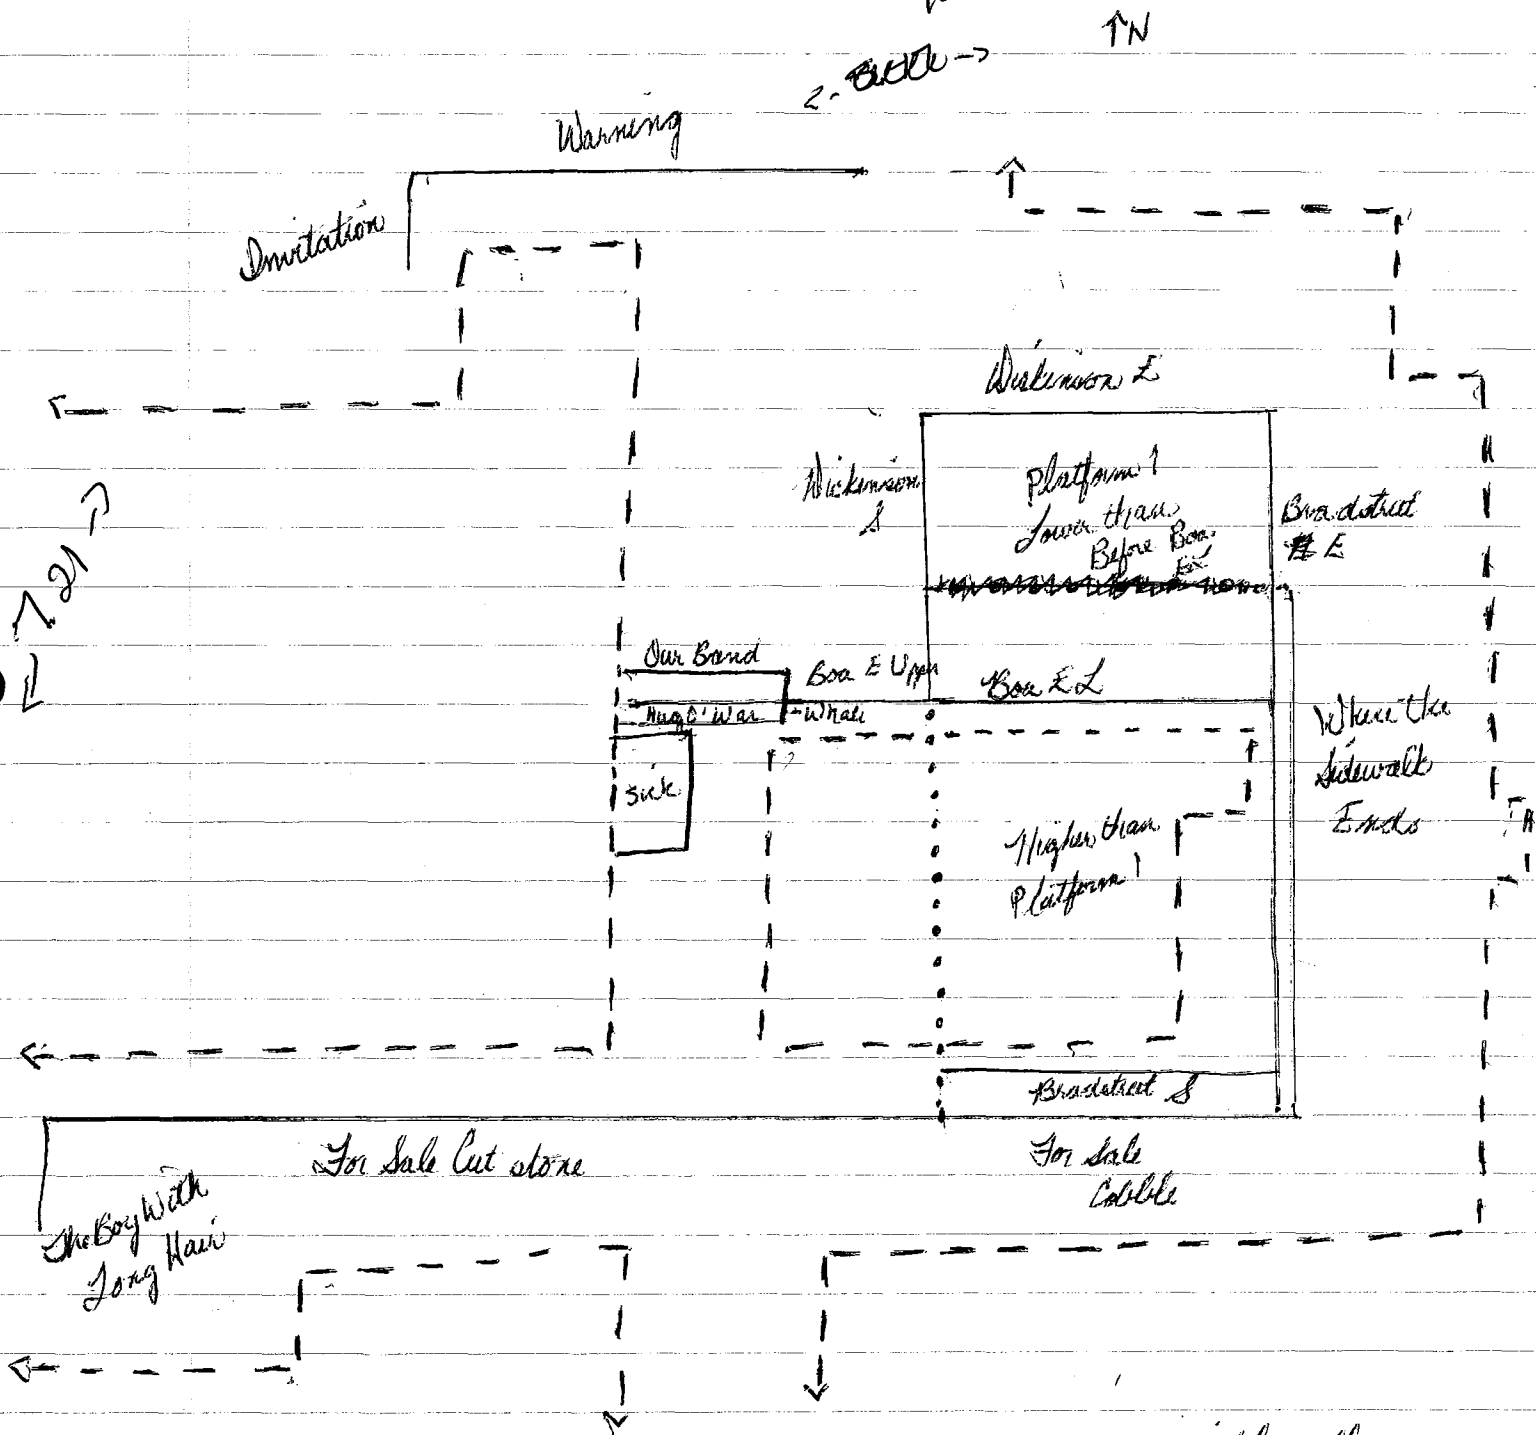 ↑N
2.
→
Warning
Invitation
Dickinson E
Dickinson
S
Platform 1
Lower than
Before Boa.
Bradstreet
E
7 21
Our Band
Boa E Upper
Boa E L
Hug O' War
-Whale
Sick
Where the
Sidewalk
Ends
Higher than
Platform 1
Bradstreet S
For Sale Cut stone
For Sale
Cobble
The Boy With
Long Hair